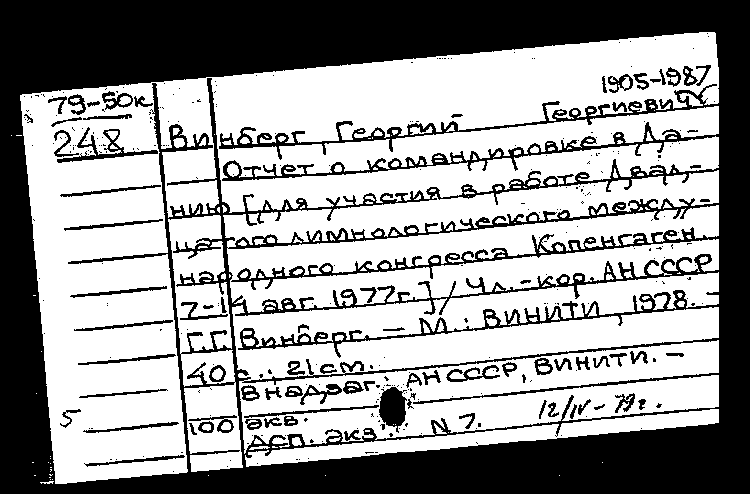 1905-1987
79-50к
248
Винберг, Георгий Георгиевич
Отчет о командировке в Да-
нию [для участия в работе Двад-
цатого лимнологического между-
народного конгресса Копенгаген.
7-14 авг. 1977г.] / Чл.-кор. АН СССР
Г.Г. Винберг. – М.: ВИНИТИ, 1978. –
40 с.; 21 см.
В надзаг.: АН СССР, ВИНИТИ. –
100 экз.
Дсп. экз. N 7. 12/IV-79г.
5